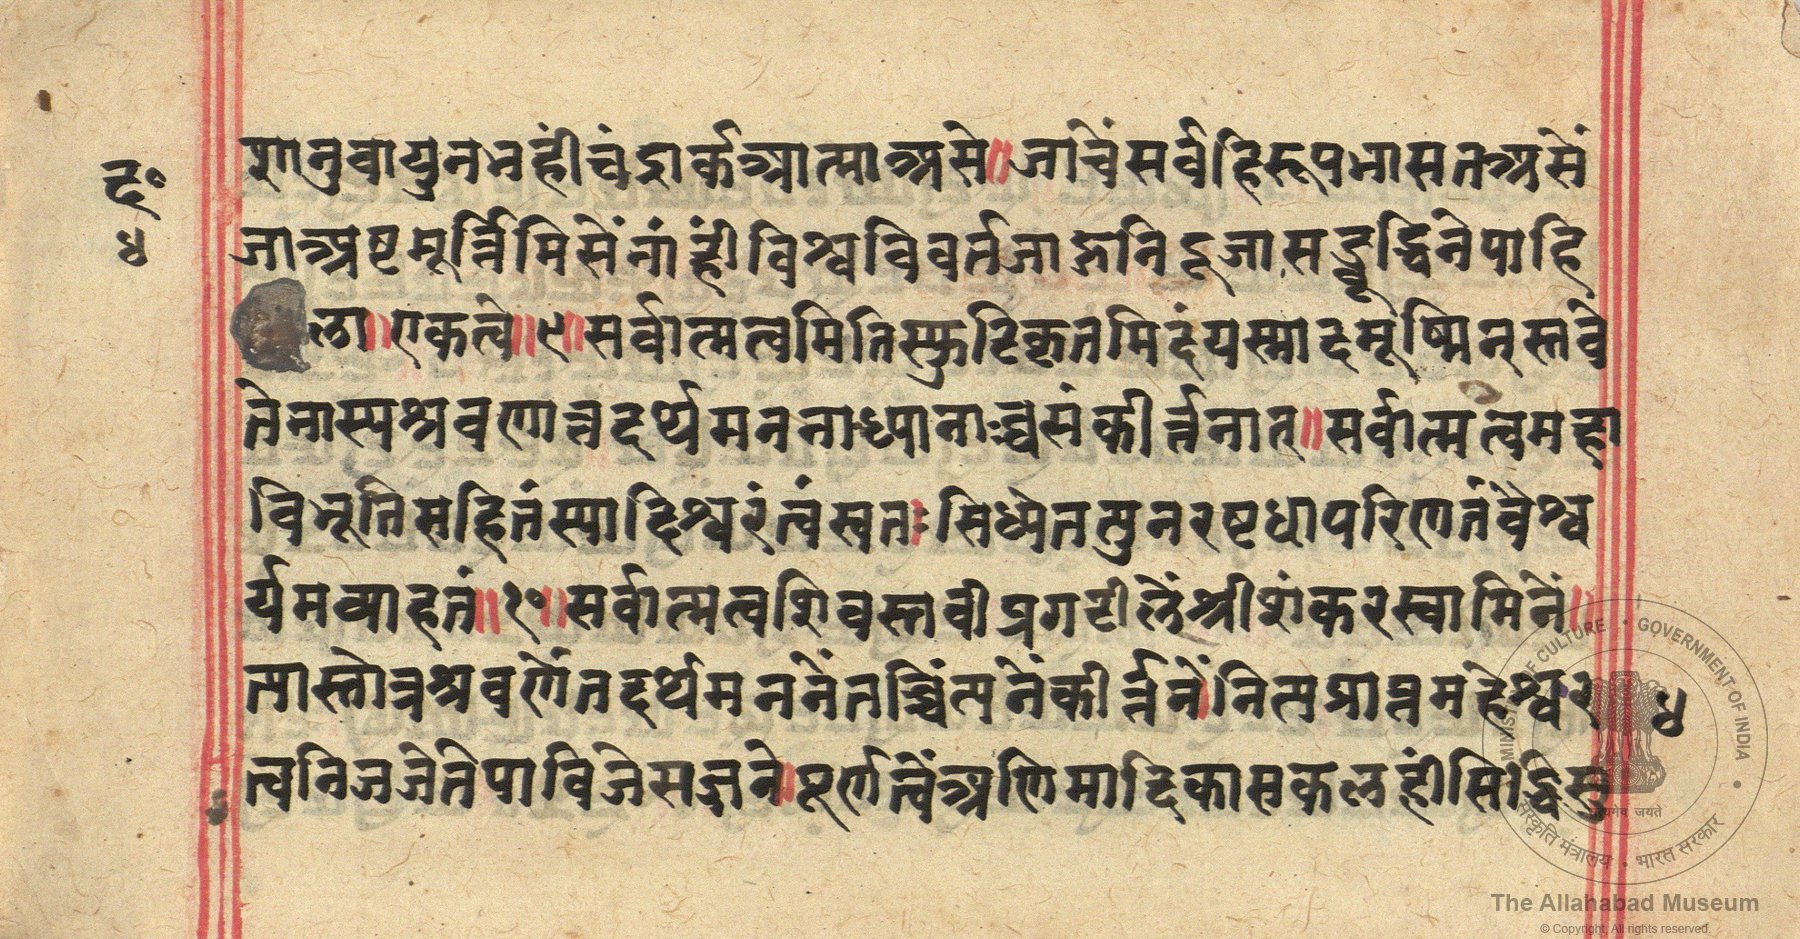 द॰
४
शानुवायुनभहीं चंद्रार्कआत्माअसे ॥ जाचें सर्वहि रूप भासत असें
जाअष्टमूर्त्तिमिसें नांहीं विश्वविवर्त जाहानि दूजा सद्बुद्धिने पाहि
ला ॥ एकत्वे ॥ ९ ॥ सर्वात्मत्वमिति स्फुटिकृतमिदं यस्मादमूष्मिन्स्तवे
तेनास्य श्रवणात्तदर्थमननाध्यानाच्चसंकीर्त्तनात् ॥ सर्वात्मत्वमहा
विभूतिसहितं स्यादिश्वरंत्वं स्वतः सिध्येतत्पुनरष्टधापरिणतं वैश्व
र्यमव्याहतं ॥ १० ॥ सर्वात्मत्वशिवस्तवी प्रगटीलें श्रीशंकरस्वामिनें ॥
त्यास्तोत्रश्रवणें तदर्थमननें तच्चिंत्यनें कीर्त्तनें । नित्य प्राप्तमहेश्वर
४
त्वनिज जे ते पाविजे सज्जने । पूर्णत्वें अणिमादिका सकलहीं सिद्धिसु
MINISTRY OF CULTURE • GOVERNMENT OF INDIA
सत्यमेव जयते
संस्कृति मंत्रालय • भारत सरकार
The Allahabad Museum
© Copyright, All rights reserved.